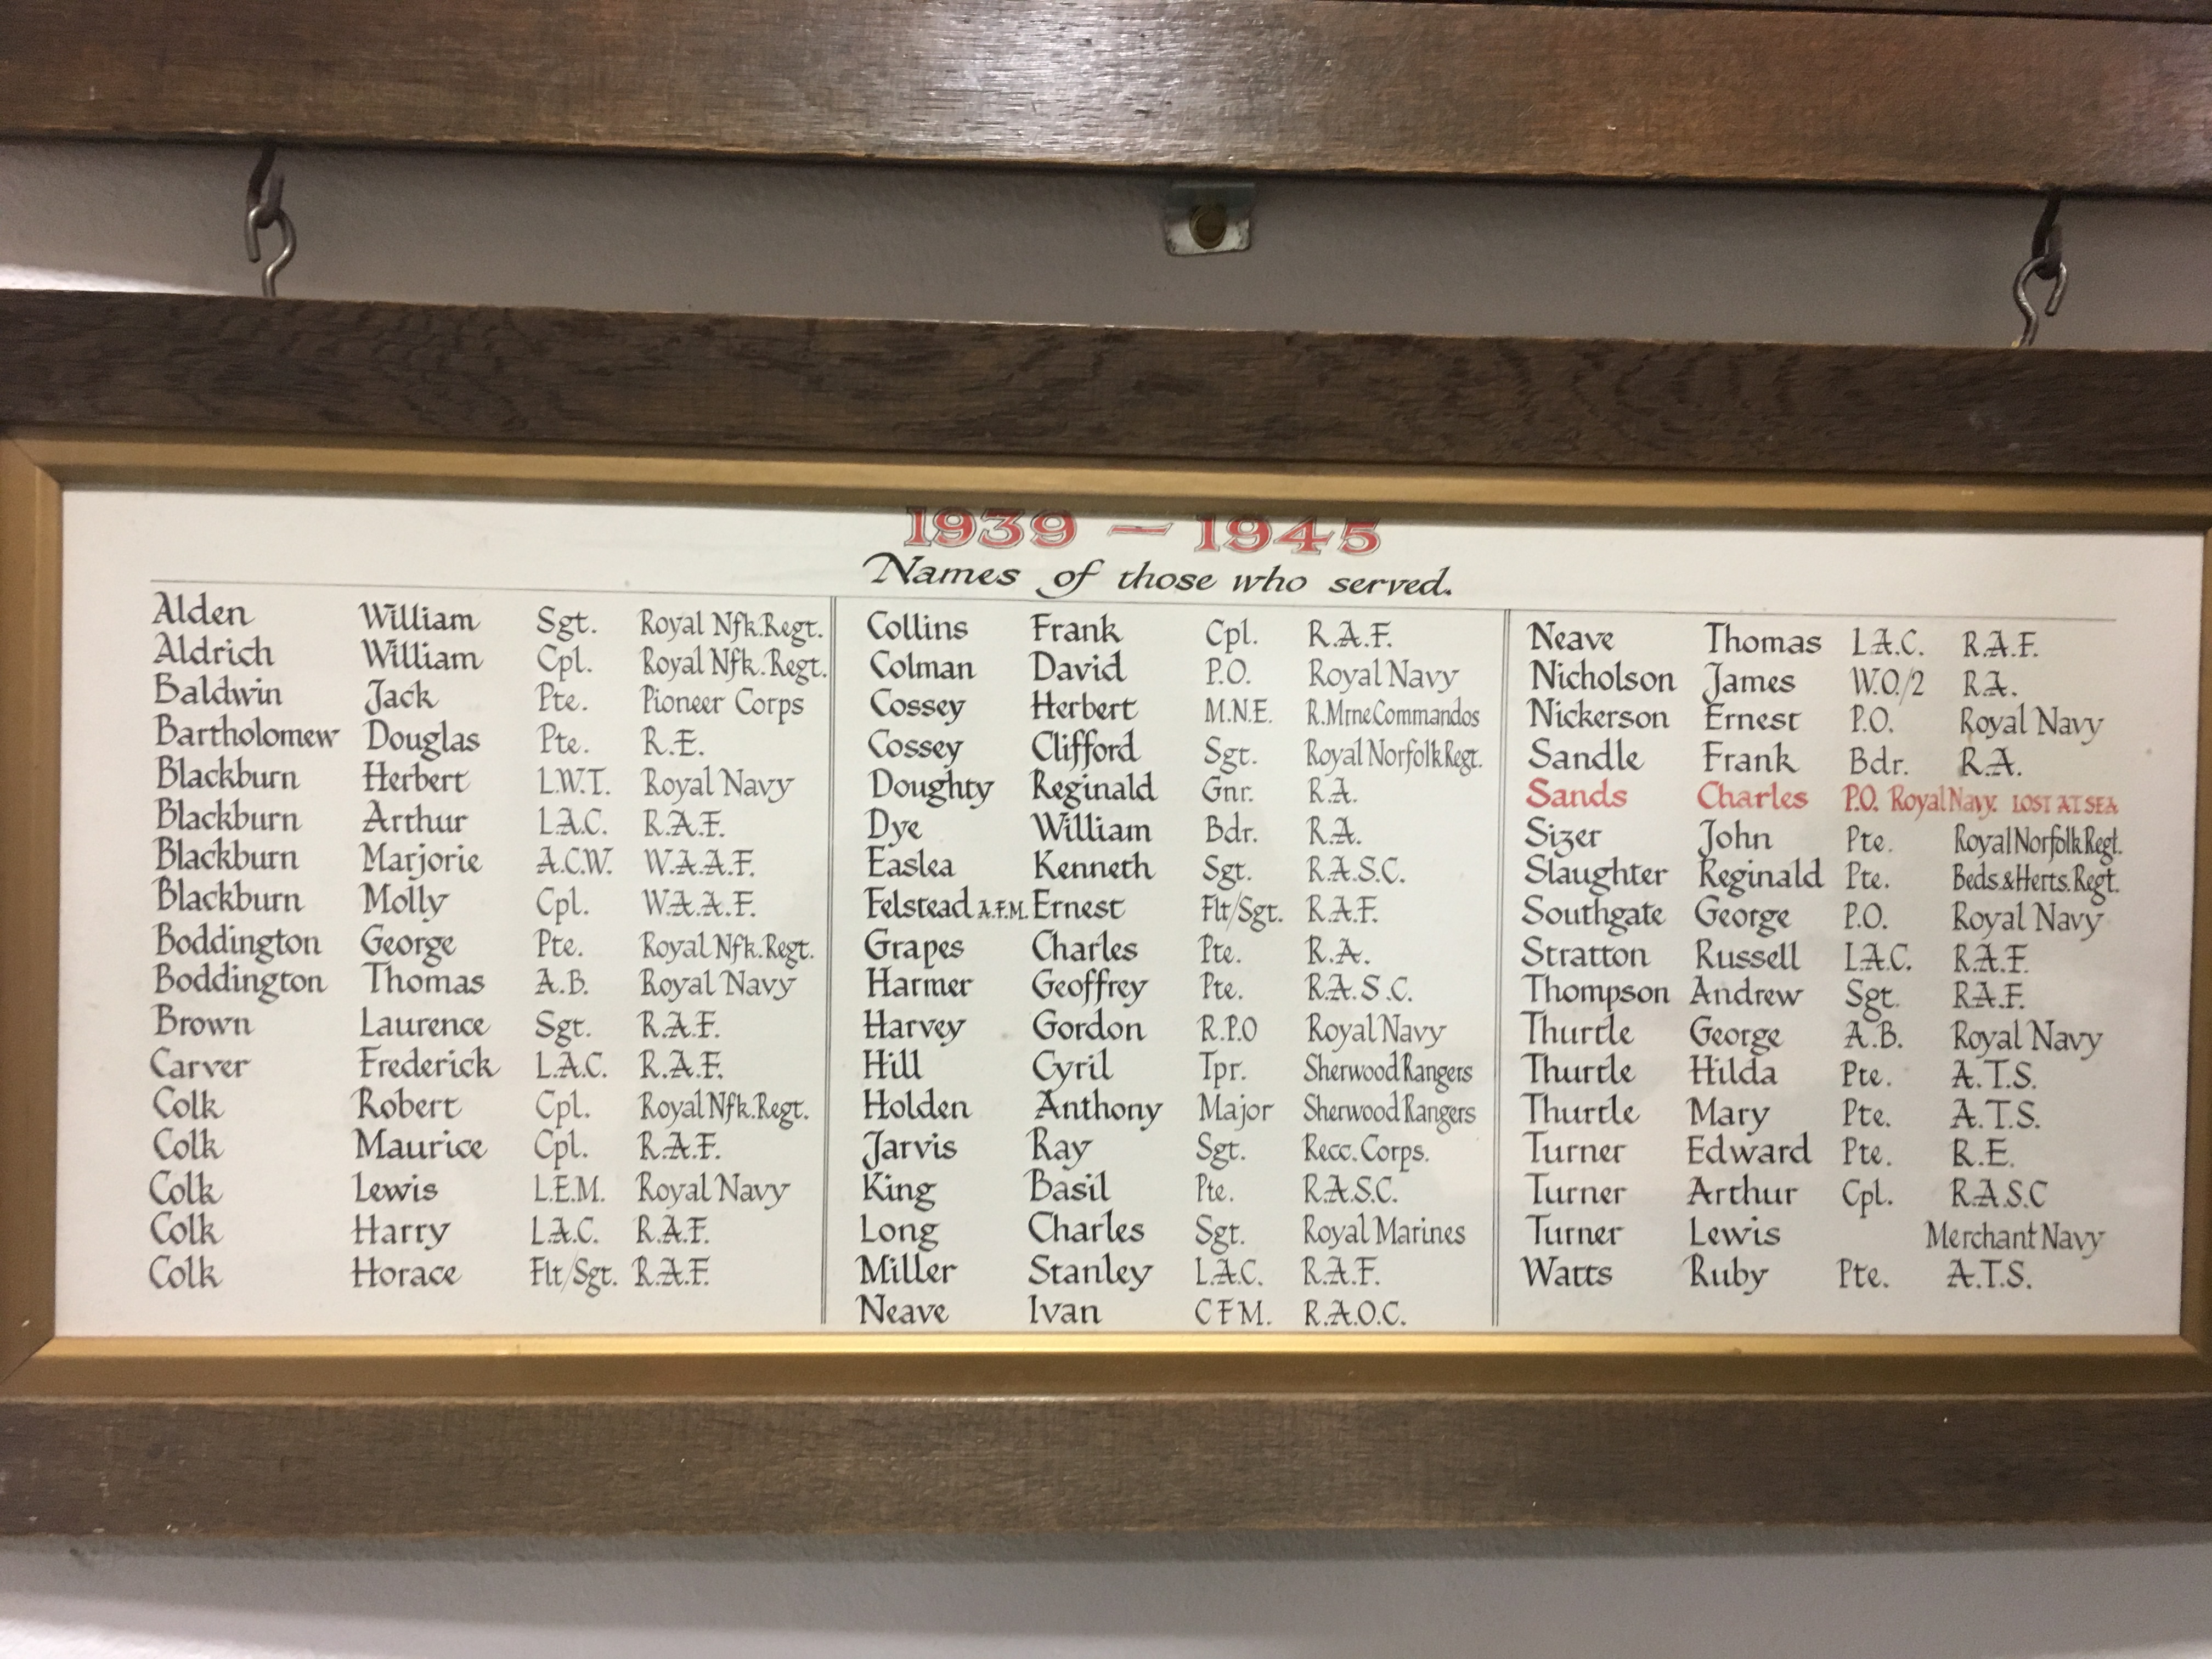 1939 — 1945
Names of those who served.
Alden William Sgt. Royal Nfk.Regt.
Aldrich William Cpl. Royal Nfk.Regt.
Baldwin Jack Pte. Pioneer Corps
Bartholomew Douglas Pte. R.E.
Blackburn Herbert L.W.T. Royal Navy
Blackburn Arthur L.A.C. R.A.F.
Blackburn Marjorie A.C.W. W.A.A.F.
Blackburn Molly Cpl. W.A.A.F.
Boddington George Pte. Royal Nfk.Regt.
Boddington Thomas A.B. Royal Navy
Brown Laurence Sgt. R.A.F.
Carver Frederick L.A.C. R.A.F.
Colk Robert Cpl. Royal Nfk.Regt.
Colk Maurice Cpl. R.A.F.
Colk Lewis L.E.M. Royal Navy
Colk Harry L.A.C. R.A.F.
Colk Horace Flt/Sgt. R.A.F.
Collins Frank Cpl. R.A.F.
Colman David P.O. Royal Navy
Cossey Herbert M.N.E. R.Mrne Commandos
Cossey Clifford Sgt. Royal Norfolk Regt.
Doughty Reginald Gnr. R.A.
Dye William Bdr. R.A.
Easlea Kenneth Sgt. R.A.S.C.
Felstead A.F.M. Ernest Flt/Sgt. R.A.F.
Grapes Charles Pte. R.A.
Harmer Geoffrey Pte. R.A.S.C.
Harvey Gordon R.P.O Royal Navy
Hill Cyril Tpr. Sherwood Rangers
Holden Anthony Major Sherwood Rangers
Jarvis Ray Sgt. Recc. Corps.
King Basil Pte. R.A.S.C.
Long Charles Sgt. Royal Marines
Miller Stanley L.A.C. R.A.F.
Neave Ivan CFM. R.A.O.C.
Neave Thomas L.A.C. R.A.F.
Nicholson James W.O./2 R.A.
Nickerson Ernest P.O. Royal Navy
Sandle Frank Bdr. R.A.
Sands Charles P.O. Royal Navy. LOST AT SEA
Sizer John Pte. Royal Norfolk Regt.
Slaughter Reginald Pte. Beds.&Herts.Regt.
Southgate George P.O. Royal Navy
Stratton Russell L.A.C. R.A.F.
Thompson Andrew Sgt. R.A.F.
Thurtle George A.B. Royal Navy
Thurtle Hilda Pte. A.T.S.
Thurtle Mary Pte. A.T.S.
Turner Edward Pte. R.E.
Turner Arthur Cpl. R.A.S.C
Turner Lewis Merchant Navy
Watts Ruby Pte. A.T.S.